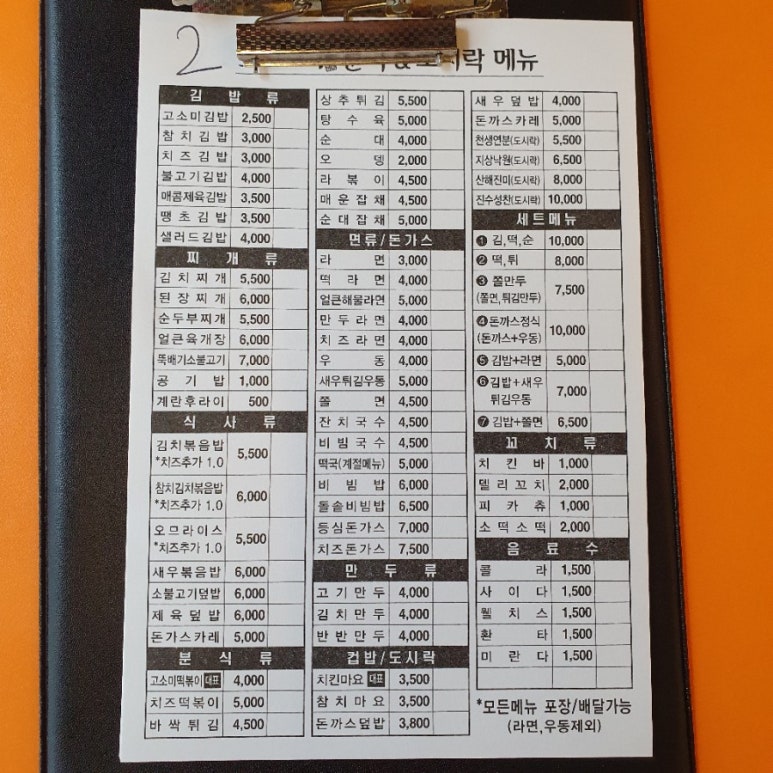 2
메뉴
김 밥 류
고소미김밥 2,500
참치김밥 3,000
치즈김밥 3,000
불고기김밥 4,000
매콤제육김밥 3,500
땡초김밥 3,500
샐러드김밥 4,000
찌 개 류
김치찌개 5,500
된장찌개 6,000
순두부찌개 5,500
얼큰육개장 6,000
뚝배기소불고기 7,000
공기밥 1,000
계란후라이 500
식 사 류
김치볶음밥 5,500
*치즈추가 1.0
참치김치볶음밥 6,000
*치즈추가 1.0
오므라이스 5,500
*치즈추가 1.0
새우볶음밥 6,000
소불고기덮밥 6,000
제육덮밥 6,000
돈가스카레 5,000
분 식 류
고소미떡볶이 대표 4,000
치즈떡볶이 5,000
바싹튀김 4,500
상추튀김 5,500
탕수육 5,000
순대 4,000
오뎅 2,000
라볶이 4,500
매운잡채 4,500
순대잡채 5,000
면류/돈가스
라면 3,000
떡라면 4,000
얼큰해물라면 5,000
만두라면 4,000
치즈라면 4,000
우동 4,000
새우튀김우동 5,000
쫄면 4,500
잔치국수 4,500
비빔국수 4,500
떡국(계절메뉴) 5,000
비빔밥 6,000
돌솥비빔밥 6,500
등심돈가스 7,000
치즈돈가스 7,500
만 두 류
고기만두 4,000
김치만두 4,000
반반만두 4,000
컵밥/도시락
치킨마요 대표 3,500
참치마요 3,500
돈까스덮밥 3,800
새우덮밥 4,000
돈까스카레 5,000
천생연분(도시락) 5,500
지상낙원(도시락) 6,500
산해진미(도시락) 8,000
진수성찬(도시락) 10,000
세트메뉴
❶ 김,떡,순 10,000
❷ 떡,튀 8,000
❸ 쫄만두 7,500
(쫄면,튀김만두)
❹돈까스정식 10,000
(돈까스+우동)
❺ 김밥+라면 5,000
❻김밥+새우 7,000
튀김우동
❼ 김밥+쫄면 6,500
꼬 치 류
치킨바 1,000
델리꼬치 2,000
피카츄 1,000
소떡소떡 2,000
음 료 수
콜라 1,500
사이다 1,500
웰치스 1,500
환타 1,500
미란다 1,500
*모든메뉴 포장/배달가능
(라면,우동제외)